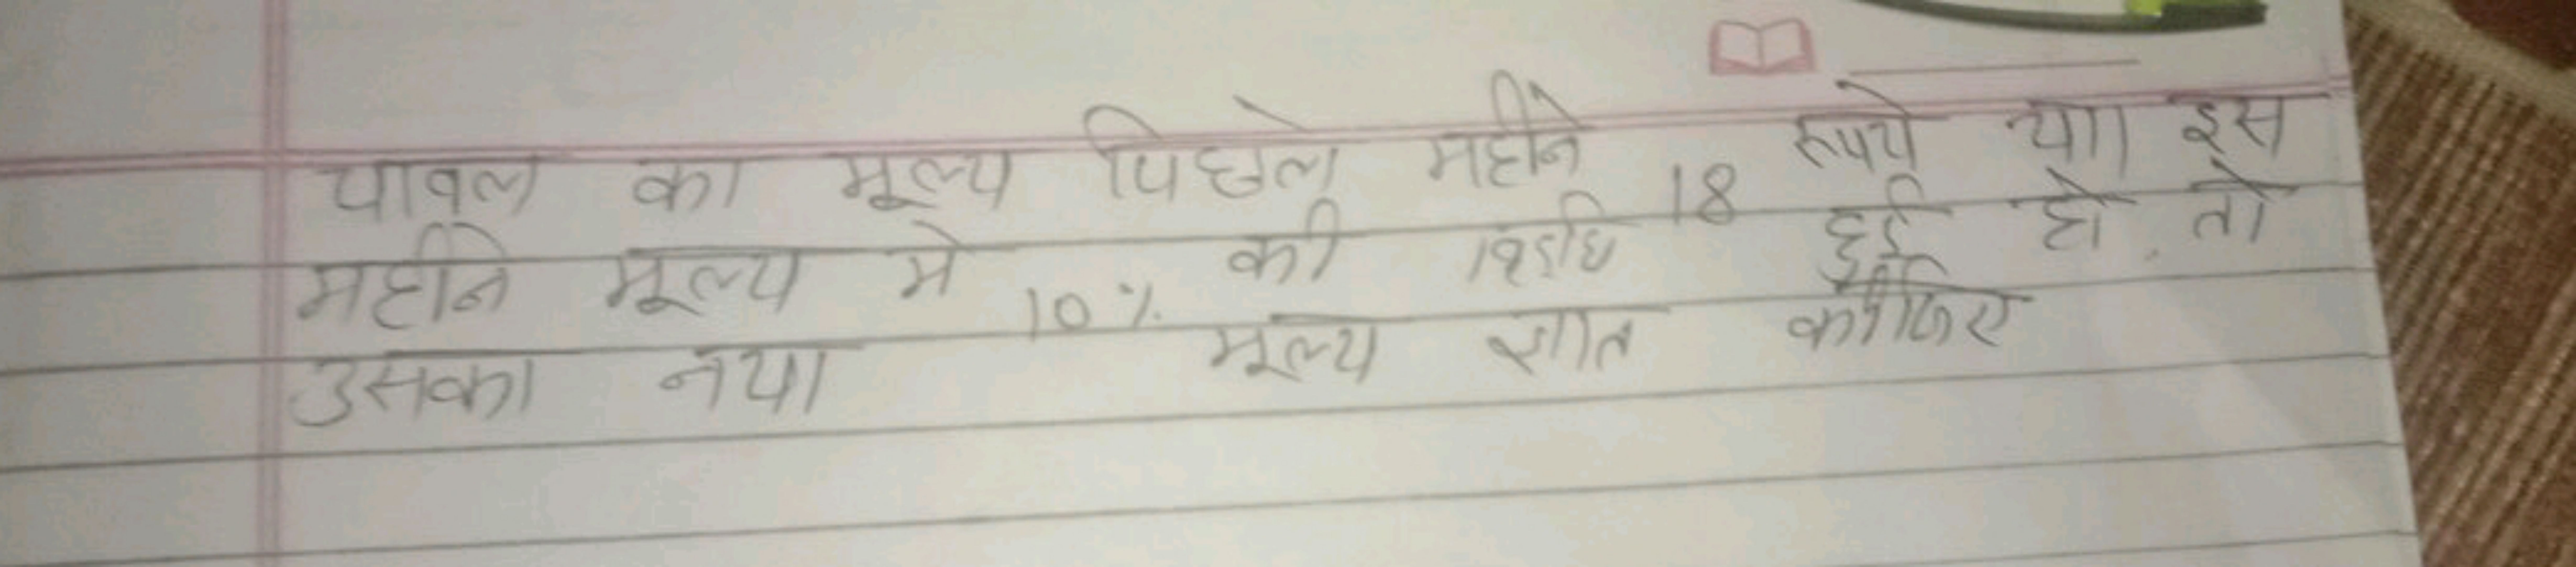 चावल का मूल्य पिछले महीने 18 रूपये था इस
महीने मूल्य मे 10% की वृद्धि हुई हो तो
उसका नया मूल्य ज्ञात कीजिए